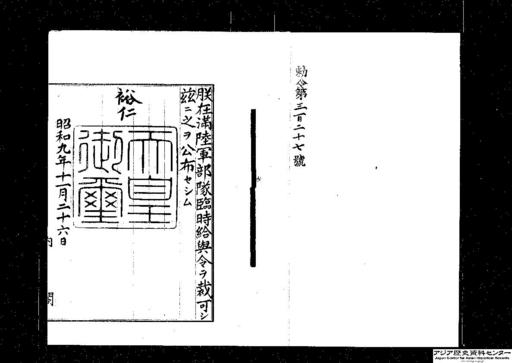 勅令第三百二十七號
朕在滿陸軍部隊臨時給與令ヲ裁可シ
玆ニ之ヲ公布セシム
裕仁
天皇
御璽
昭和九年十一月二十六日
内閣
アジア歴史資料センター
Japan Center for Asian Historical Records